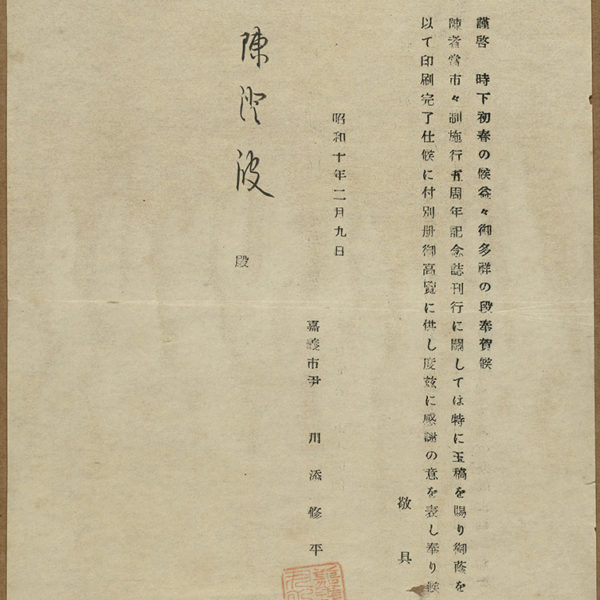 謹啓 時下初春の候益々御多祥の段奉賀候
陳者當市々制施行五周年記念誌刊行に關しては特に玉稿を賜り御蔭を
以て印刷完了仕候に付別册御高覽に供し度玆に感謝の意を表し奉り候
敬具
昭和十年二月九日
嘉義市尹 川添修平
陳澄波 殿